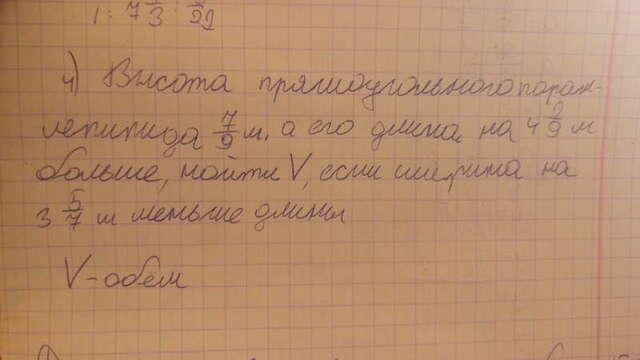 4) Высота прямоугольного парал-
лепипида 7/9 м, а его длина на 4 2/9 м
больше, найти V, если ширина на
3 5/7 м меньше длины
V - обем